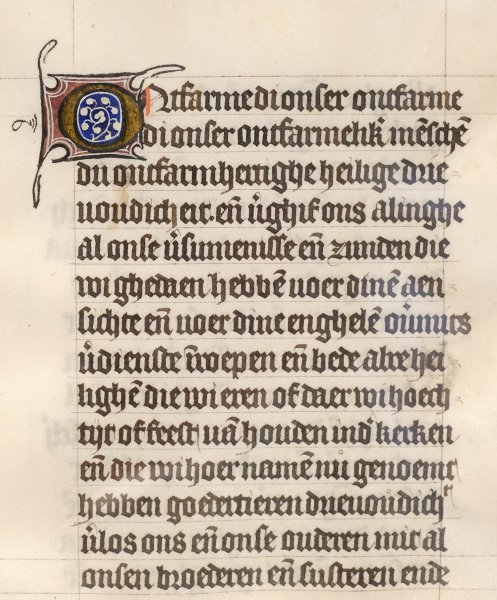 Ontfarme di onser ontfarme
di onser ontfarmelik̄ mēschē
du ontfarmhertighe heilige drie
voudicheit. eñ v̄ghif ons alinghe
al onse v̄sumenisse eñ zunden die
wi ghedaen hebbē voer dinē aen
sichte eñ voer dine enghelē
v̄dienste eñ bede alre hei
lighē die wi eren of daer wi hoech
tyt of feest vā houden ind̄ kerken
eñ die wi hoer namē nu genoemt
hebben goedertieren drievoudich
v̄los ons eñ onse ouderen mit al
onsen broederen eñ susteren ende